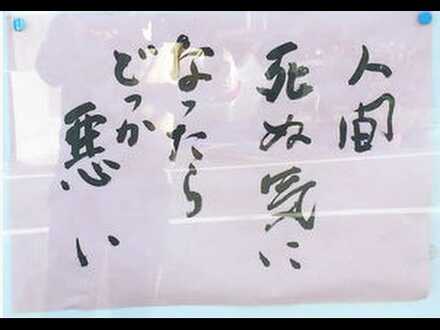 人間
死ぬ気に
なったら
どっか
悪い